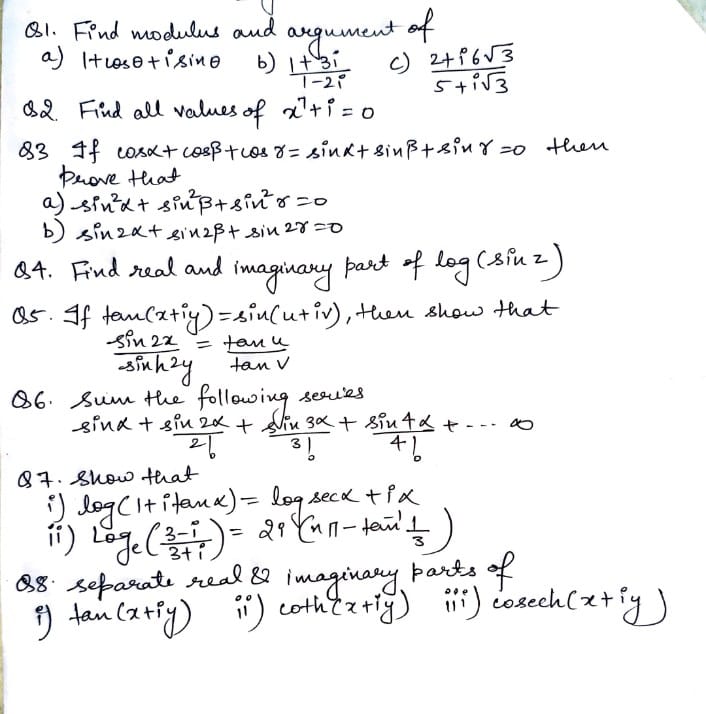 Q1. Find modulus and argument of
a) 1+cosθ+isinθ b) 1+3i / 1-2i c) 2+i6√3 / 5+i√3
Q2. Find all values of x⁷+i=0
Q3 If cosα+cosβ+cosγ=sinα+sinβ+sinγ=0 then
prove that
a) sin²α+sin²β+sin²γ=0
b) sin2α+sin2β+sin2γ=0
Q4. Find real and imaginary part of log(sinz)
Q5. If tan(x+iy)=sin(u+iv), then show that
sin2x / sinh2y = tanu / tanv
Q6. Sum the following series
sinα + sin2α / 2! + sin3α / 3! + sin4α / 4! + ---- ∞
Q7. Show that
i) log(1+itanα)= log secα +iα
ii) Logₑ(3-i / 3+i)= 2i(nπ-tan⁻¹ 1/3)
Q8. separate real & imaginary parts of
i) tan(x+iy) ii) coth(x+iy) iii) cosech(x+iy)